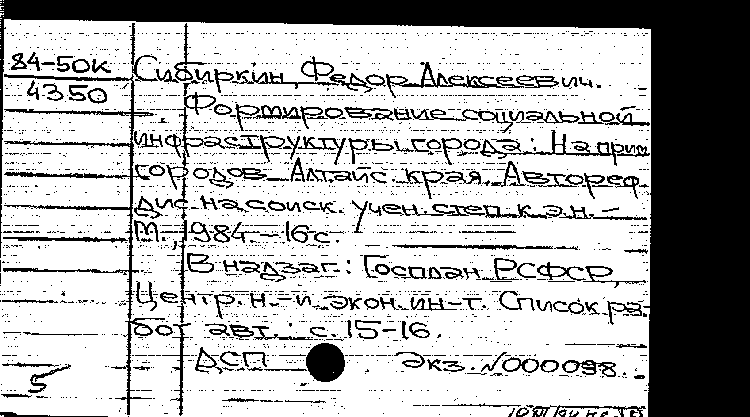 84-50к Сибиркин, Федор Алексеевич.
4350
Формирование социальной
инфраструктуры города: На прим.
городов Алтайс. края. Автореф.
дис. на соиск. учен. степ. к.э.н. –
М., 1984. – 16 с.
В надзаг.: Госплан РСФСР,
Центр. н.-и. экон. ин-т. Список ра-
бот авт.: с. 15-16.
ДСП Экз. N000098.
5